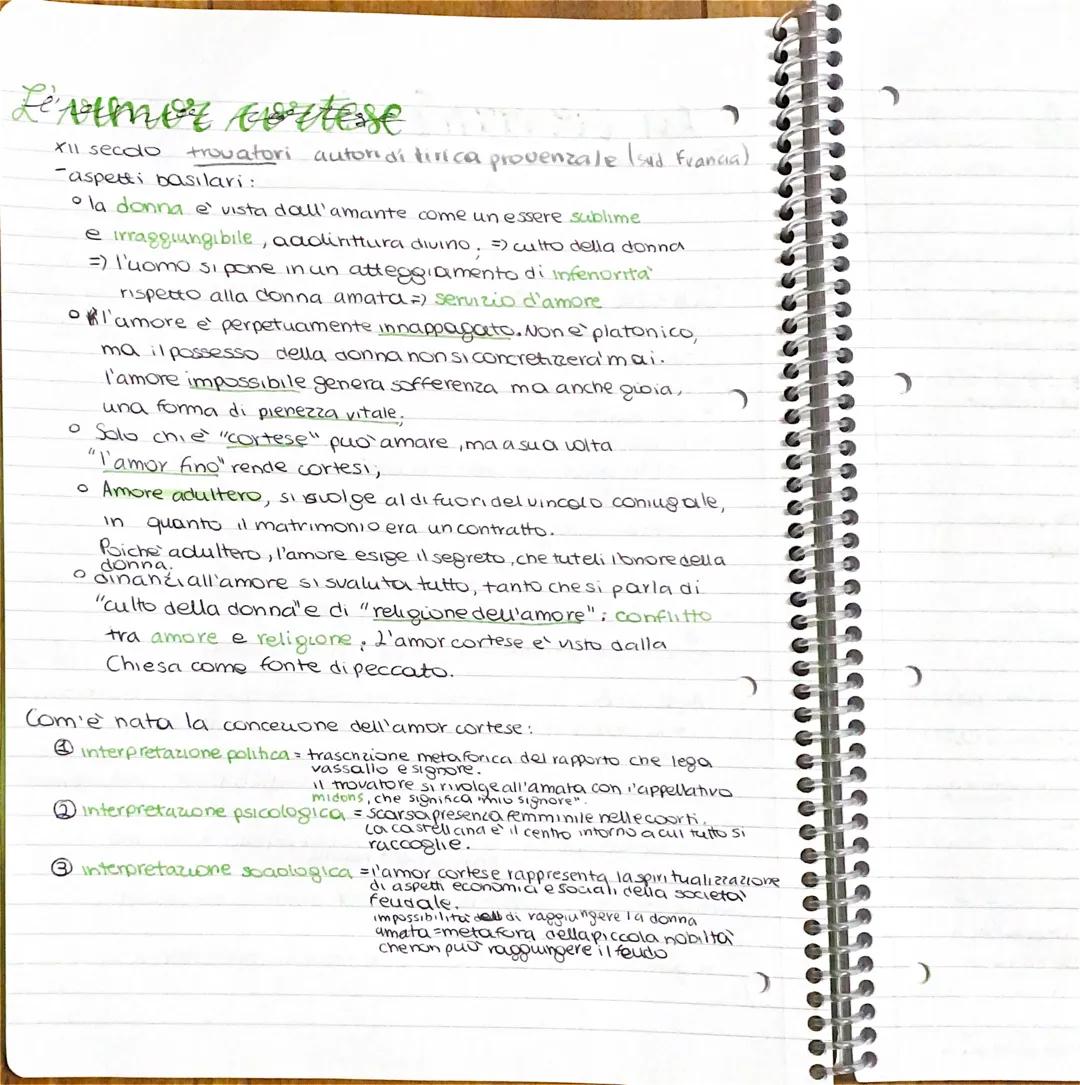 L'amor cortese
XII secolo trovatori autori di lirica provenzale (sud Francia)
-aspetti basilari:
la donna è vista dall'amante come un essere sublime
e irraggiungibile, addirittura divino; => culto della donna
=> l'uomo si pone in un atteggiamento di inferiorità
rispetto alla donna amata => servizio d'amore
l'amore è perpetuamente innappagato. Non è platonico,
ma il possesso della donna non si concretizzerà mai.
l'amore impossibile genera sofferenza ma anche gioia,
una forma di pienezza vitale;
Solo chi è "cortese" può amare, ma a sua volta
"l'amor fino" rende cortesi;
Amore adultero, si svolge al di fuori del vincolo coniugale,
in quanto il matrimonio era un contratto.
Poiché adultero, l'amore esige il segreto, che tuteli l'onore della
donna.
dinanzi all'amore si svaluta tutto, tanto che si parla di
"culto della donna" e di "religione dell'amore": conflitto
tra amore e religione. L'amor cortese è visto dalla
Chiesa come fonte di peccato.
Com'è nata la concezione dell'amor cortese:
① interpretazione politica = trascrizione metaforica del rapporto che lega
vassallo e signore.
il trovatore si rivolge all'amata con l'appellativo
midons, che significa "mio signore".
② interpretazione psicologica = scarsa presenza femminile nelle coorti.
La castellana è il centro intorno a cui tutto si
raccoglie.
③ interpretazione sociologica = l'amor cortese rappresenta la spiritualizzazione
di aspetti economici e sociali della società
feudale.
impossibilità di raggiungere la donna
amata = metafora della piccola nobiltà
che non può raggiungere il feudo